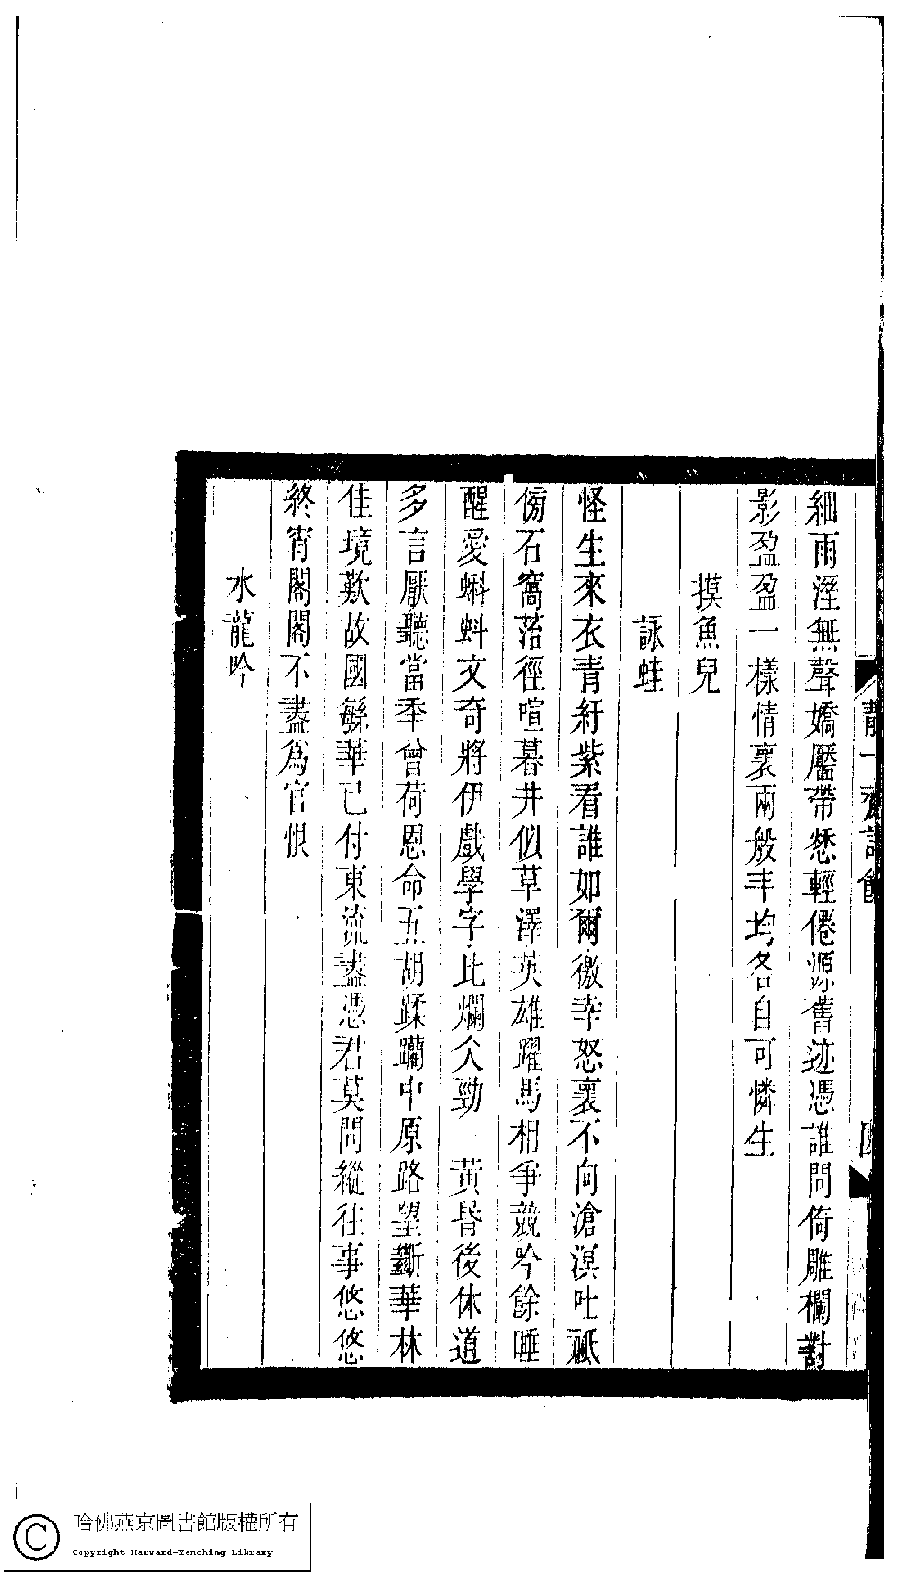 細雨溼無聲嬌靨帶愁輕倦源舊迹憑誰問倚雕欄對
影盈盈一樣情裏兩般丰均各自可憐生
摸魚兒
詠蛙
怪生來衣青紆紫看誰如爾徼幸怒裏不向滄溟吐祇
傍石窩落徑喧暮井似草澤英雄躍馬相爭競吟餘睡
醒愛蝌蚪文奇將伊戲學字比爛仌勁 黃昏後休道
多言厭聽當年曾荷恩命五胡蹂躪中原路望斷華林
佳境歎故國繁華已付東流盡憑君莫問縱往事悠悠
終宵閣閣不盡爲官恨
水龍吟
靜一齋詩餘
四
哈佛燕京圖書館版權所有
Copyright Harvard-Yenching Library